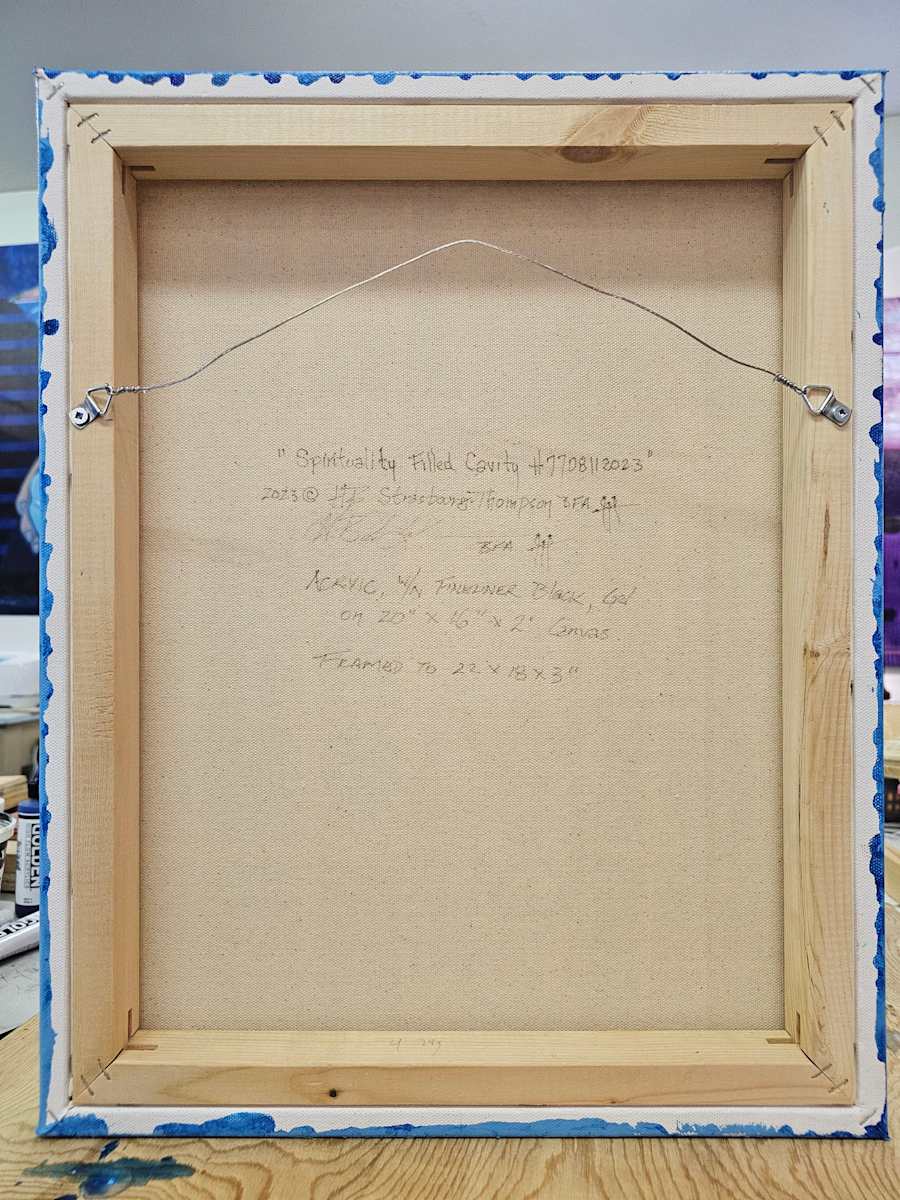 "Spirituality Filled Cavity #7708112023"
2023 © Strasburg-Thompson BFA
BFA
ACRYLIC, W/N FINELINER Black,
on 20" x 16" x 2" Canvas.
FRAMED TO 22 x 18 x 3"
GOLDEN